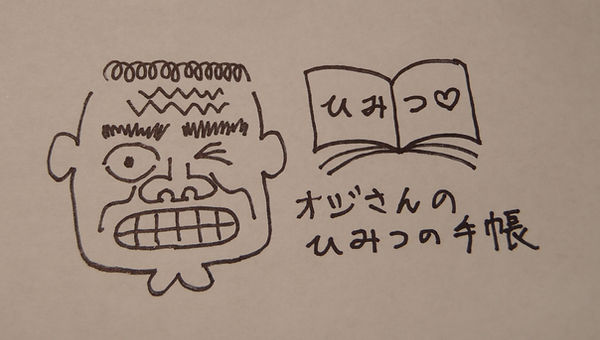 ひみつ♡
オジさんの
ひみつの手帳